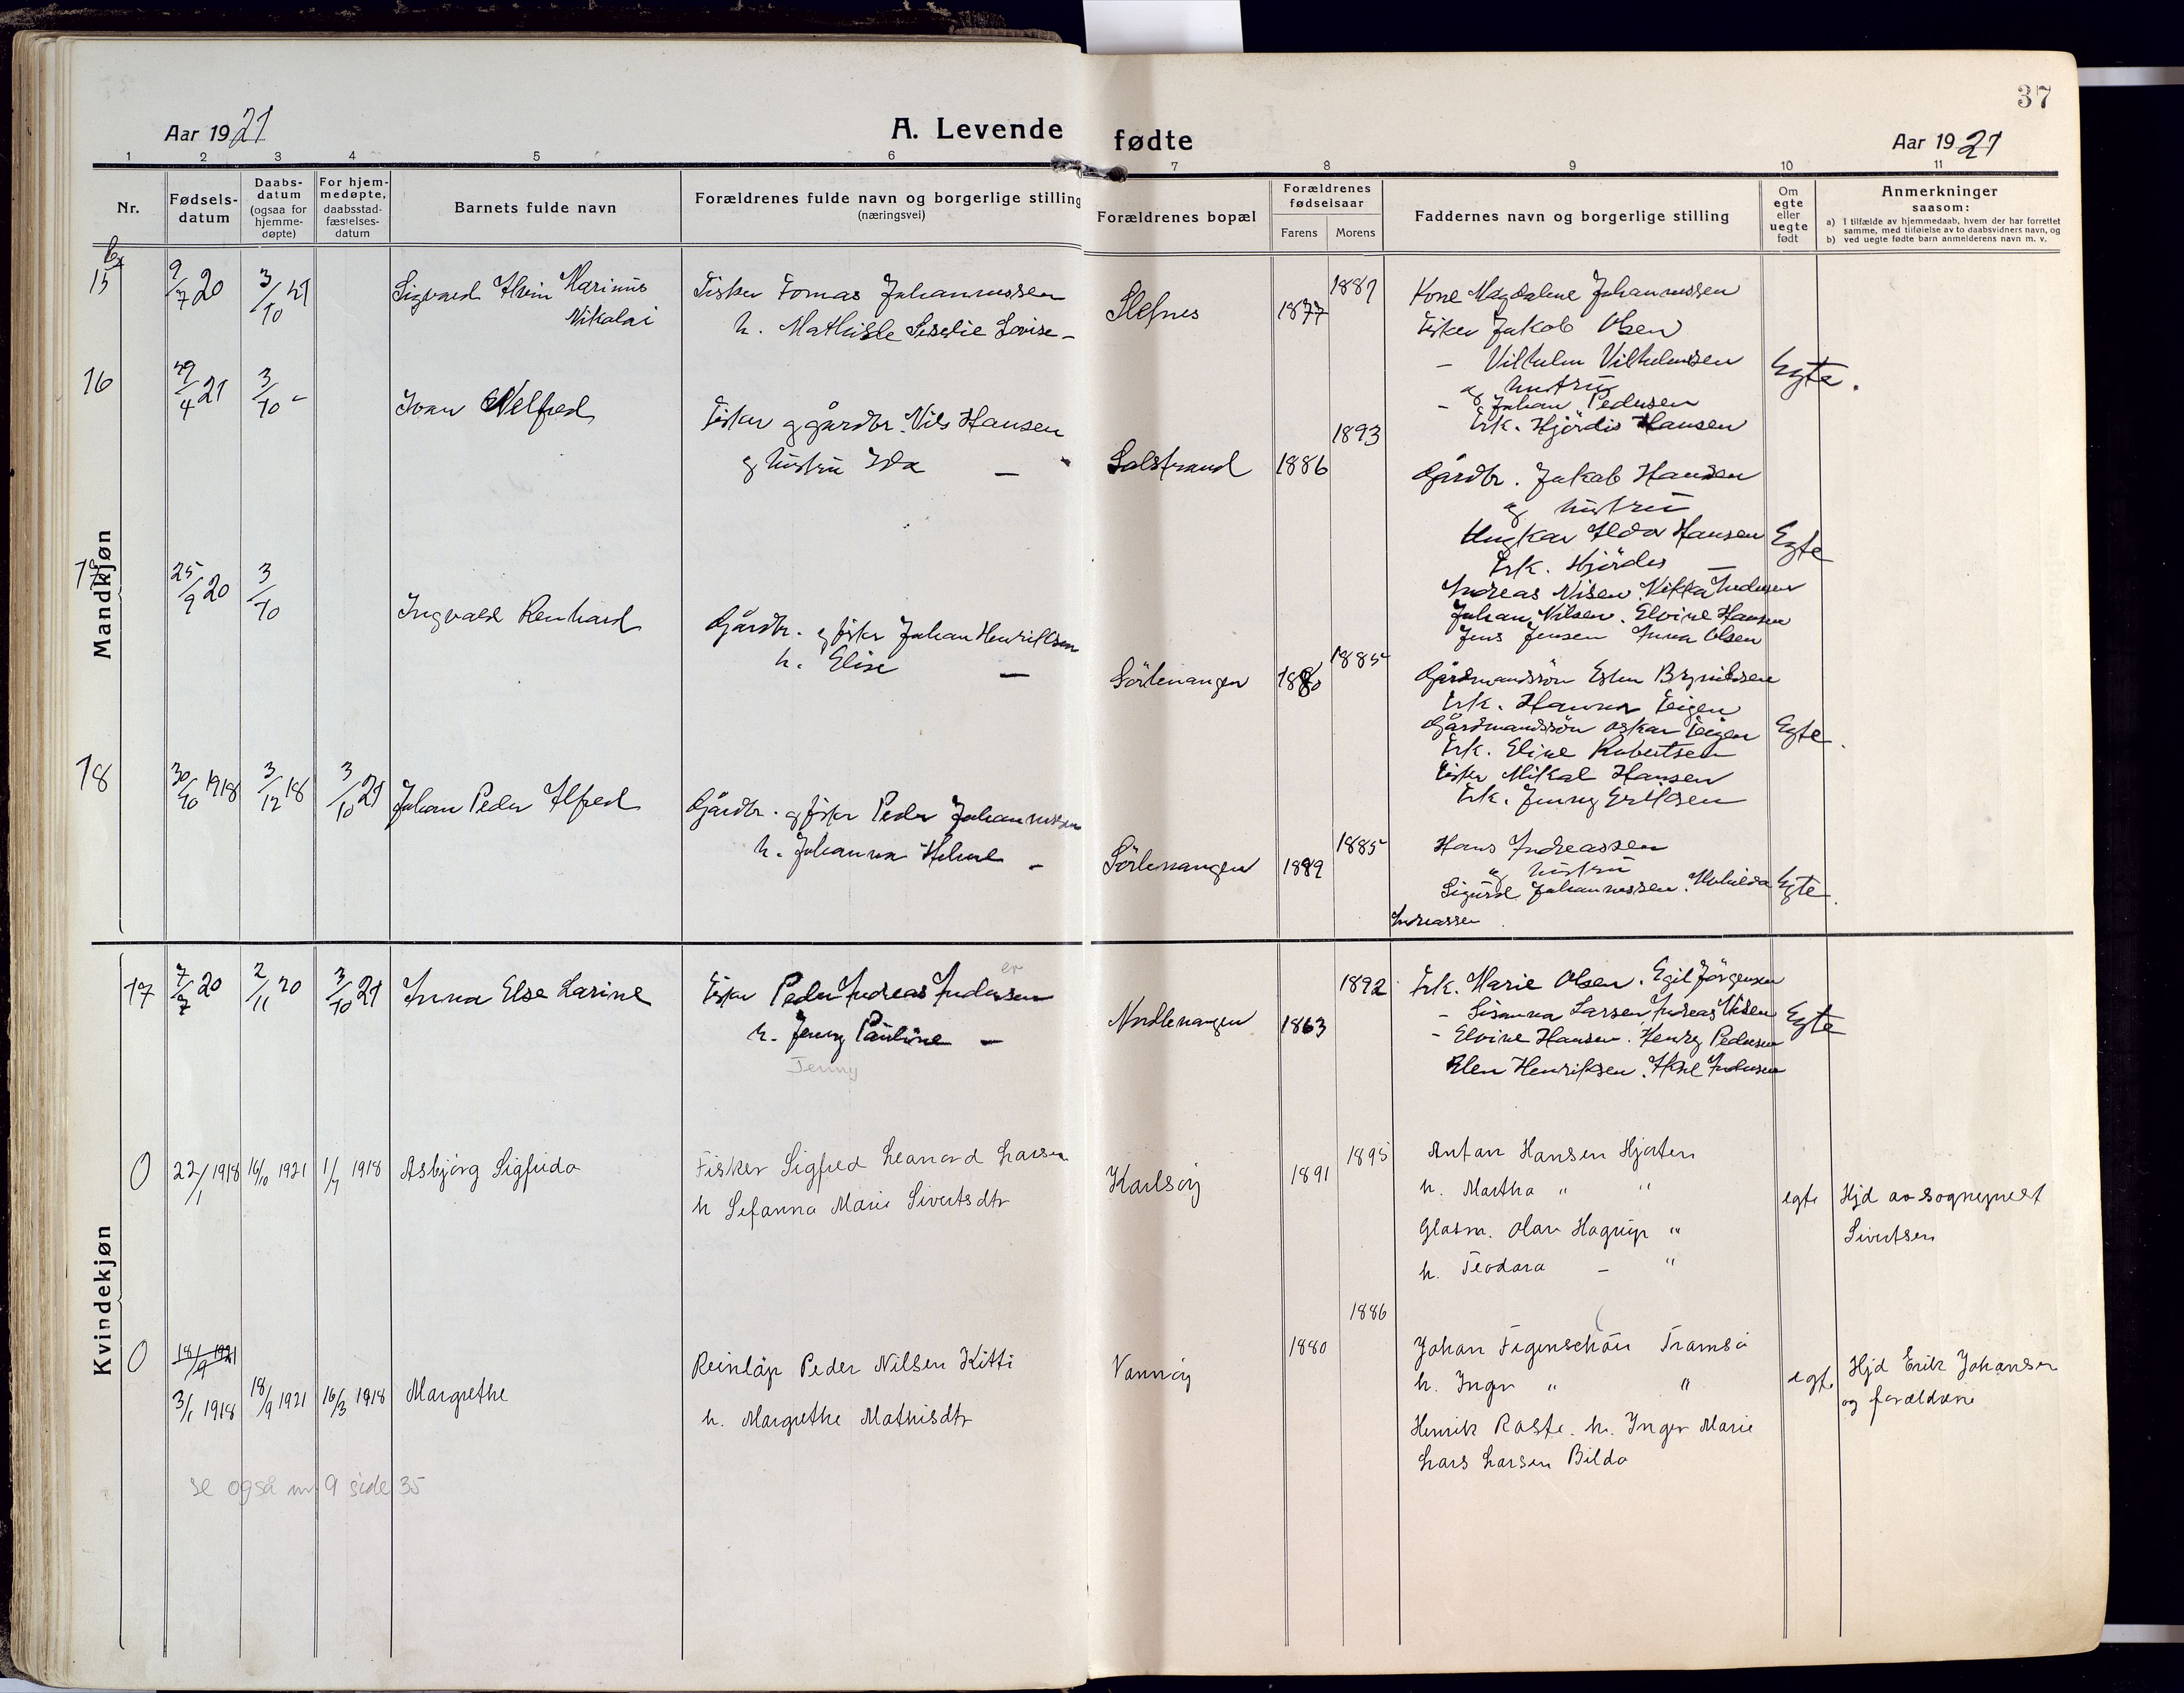 37
Aar 1921
A. Levende fødte
Aar 1921
1 2 3 4 5 6 7 8 9 10 11
Nr.
Fødselsdatum
Daabsdatum (ogsaa for hjemmedøpte)
For hjemmedøpte, daabsstadfæstelsesdatum
Barnets fulde navn
Forældrenes fulde navn og borgerlige stilling
(næringsvei)
Forældrenes bopæl
Forældrenes fødselsaar
Farens Morens
Faddernes navn og borgerlige stilling
Om egte eller uegte født
Anmerkninger
saasom:
a) I tilfælde av hjemmedaab, hvem der har forrettet samme, med tilføielse av to daabsvidners navn, og
b) ved uegte fødte barn anmelderens navn m. v.
Mandkjøn
15 9/7 20 3/10 21 Sigvard Alvin Marinus
Nikolai
Fisker Tomas Johannessen
h. Mathilde Seselie Lovise -
Slefnes 1877 1887
Kone Magdalene Johannessen
Fisker Jakob Olsen
- Vilhelm Vilhelmsen
og hustru
- Johan Pedersen
Frk. Hjördis Hansen
Egte.
16 29/4 21 3/10 - Ivan Velfred
Fisker og gårdbr. Nils Hansen
og hustru Ida -
Solstrand 1886 1893
Gårdbr. Jakob Hansen
og hustru
Ungkar Alda Hansen
Frk. Hjördis -
Andreas Nilsen. Vikka Andersen
Johan Nilsen. Elvine Hansen
Jens Jensen Anna Olsen
Egte
17 25/9 20 3/10 Ingvald Renhard
Gårdbr. og fisker Johan Henriksen
h. Elise -
Sörlenangen 1880 1885
Gårdmandssön Esten Brynildsen
Frk. Hanna Teigen
Gårdmandssön Oskar Teigen
Frk. Eline Robertsen
Fisker Mikal Hansen
Frk. Jenny Eriksen
Egte.
18 30/10 1918 3/12 18 3/10 21 Johan Peder Alfred
Gårdbr. og fisker Peder Johannessen
h. Johanna Helene -
Sörlenangen 1889 1885
Hans Andreassen
og hustru
Sigurd Johannessen. Mathilda
Andreassen.
Egte.
Kvindekjøn
17 7/7 20 2/11 20 3/10 21 Anna Else Larine
Fisker Peder Andreas Andersen
er
h. Jenny Pauline -
Jenny
Nordlenangen 1863 1892
Frk. Marie Olsen. Egil Jörgensen
- Susanna Larsen Andreas Nilsen
- Elvine Hansen. Henry Pedersen
Elen Henriksen. Aksel Andersen
Egte
0 22/1 1918 16/10 1921 1/7 1918 Asbjørg Sigfrida
Fisker Sigfred Leonard Larsen
h Sefanna Marie Sivertsdtr
Karlsøy 1891 1895
Antan Hansen Hjorten
h. Martha " "
Glasm. Olav Hagrup "
h. Teodora - "
egte
Hjd av sogneprest
Sivertsen
0 18/9 1921
3/1 1918 18/9 1921 16/3 1918 Margrethe
Reinlap Peder Nilsen Kitti
h. Margrethe Mathisdtr
Vannøy 1880 1886
Johan Figenschau Tromsø
h. Inger " "
Henrik Raste. h. Inger Marie
Lars Larsen Bilda
egte
Hjd Erik Johansen
og forældrene
se også nr 9 side 35